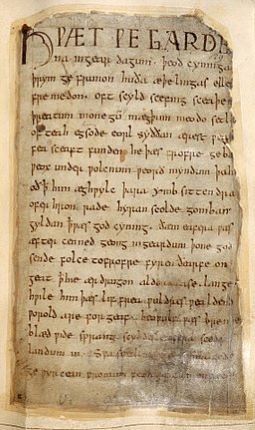 HǷÆT ǷE GARDE
na ingear dagum. þeod cyninga
þrym ge frunon huða æþelingas elle
fremedon. oft scyld scefing sceaþe
þreatum monegū mægþum meodo setla
of teah egsode eorl syððan ærest ƿear
fea sceaft funden he þæs frofre geba
ƿeox under ƿolcnum ƿeorð myndum þah
oð ꝥ him æghƿylc þara ymb sittendra
ofer hron rade hyran scolde gomban
gyldan ꝥ ƿæs god cyning. ðæm eafera ƿæs
æfter cenned geong ingeardum þone god
sende folce tofrofre fyren ðearfe on
geat ꝥ hie ær drugon aldor ase. lange
hƿile him þæs lif frea ƿuldres ƿealdend
ƿorold are for geaf. beoƿulf ƿæs breme
blæd ƿide sprang scyldes eafera scede
landum in. Sƿa sceal
ge ƿyrcean fromum feoh giftum